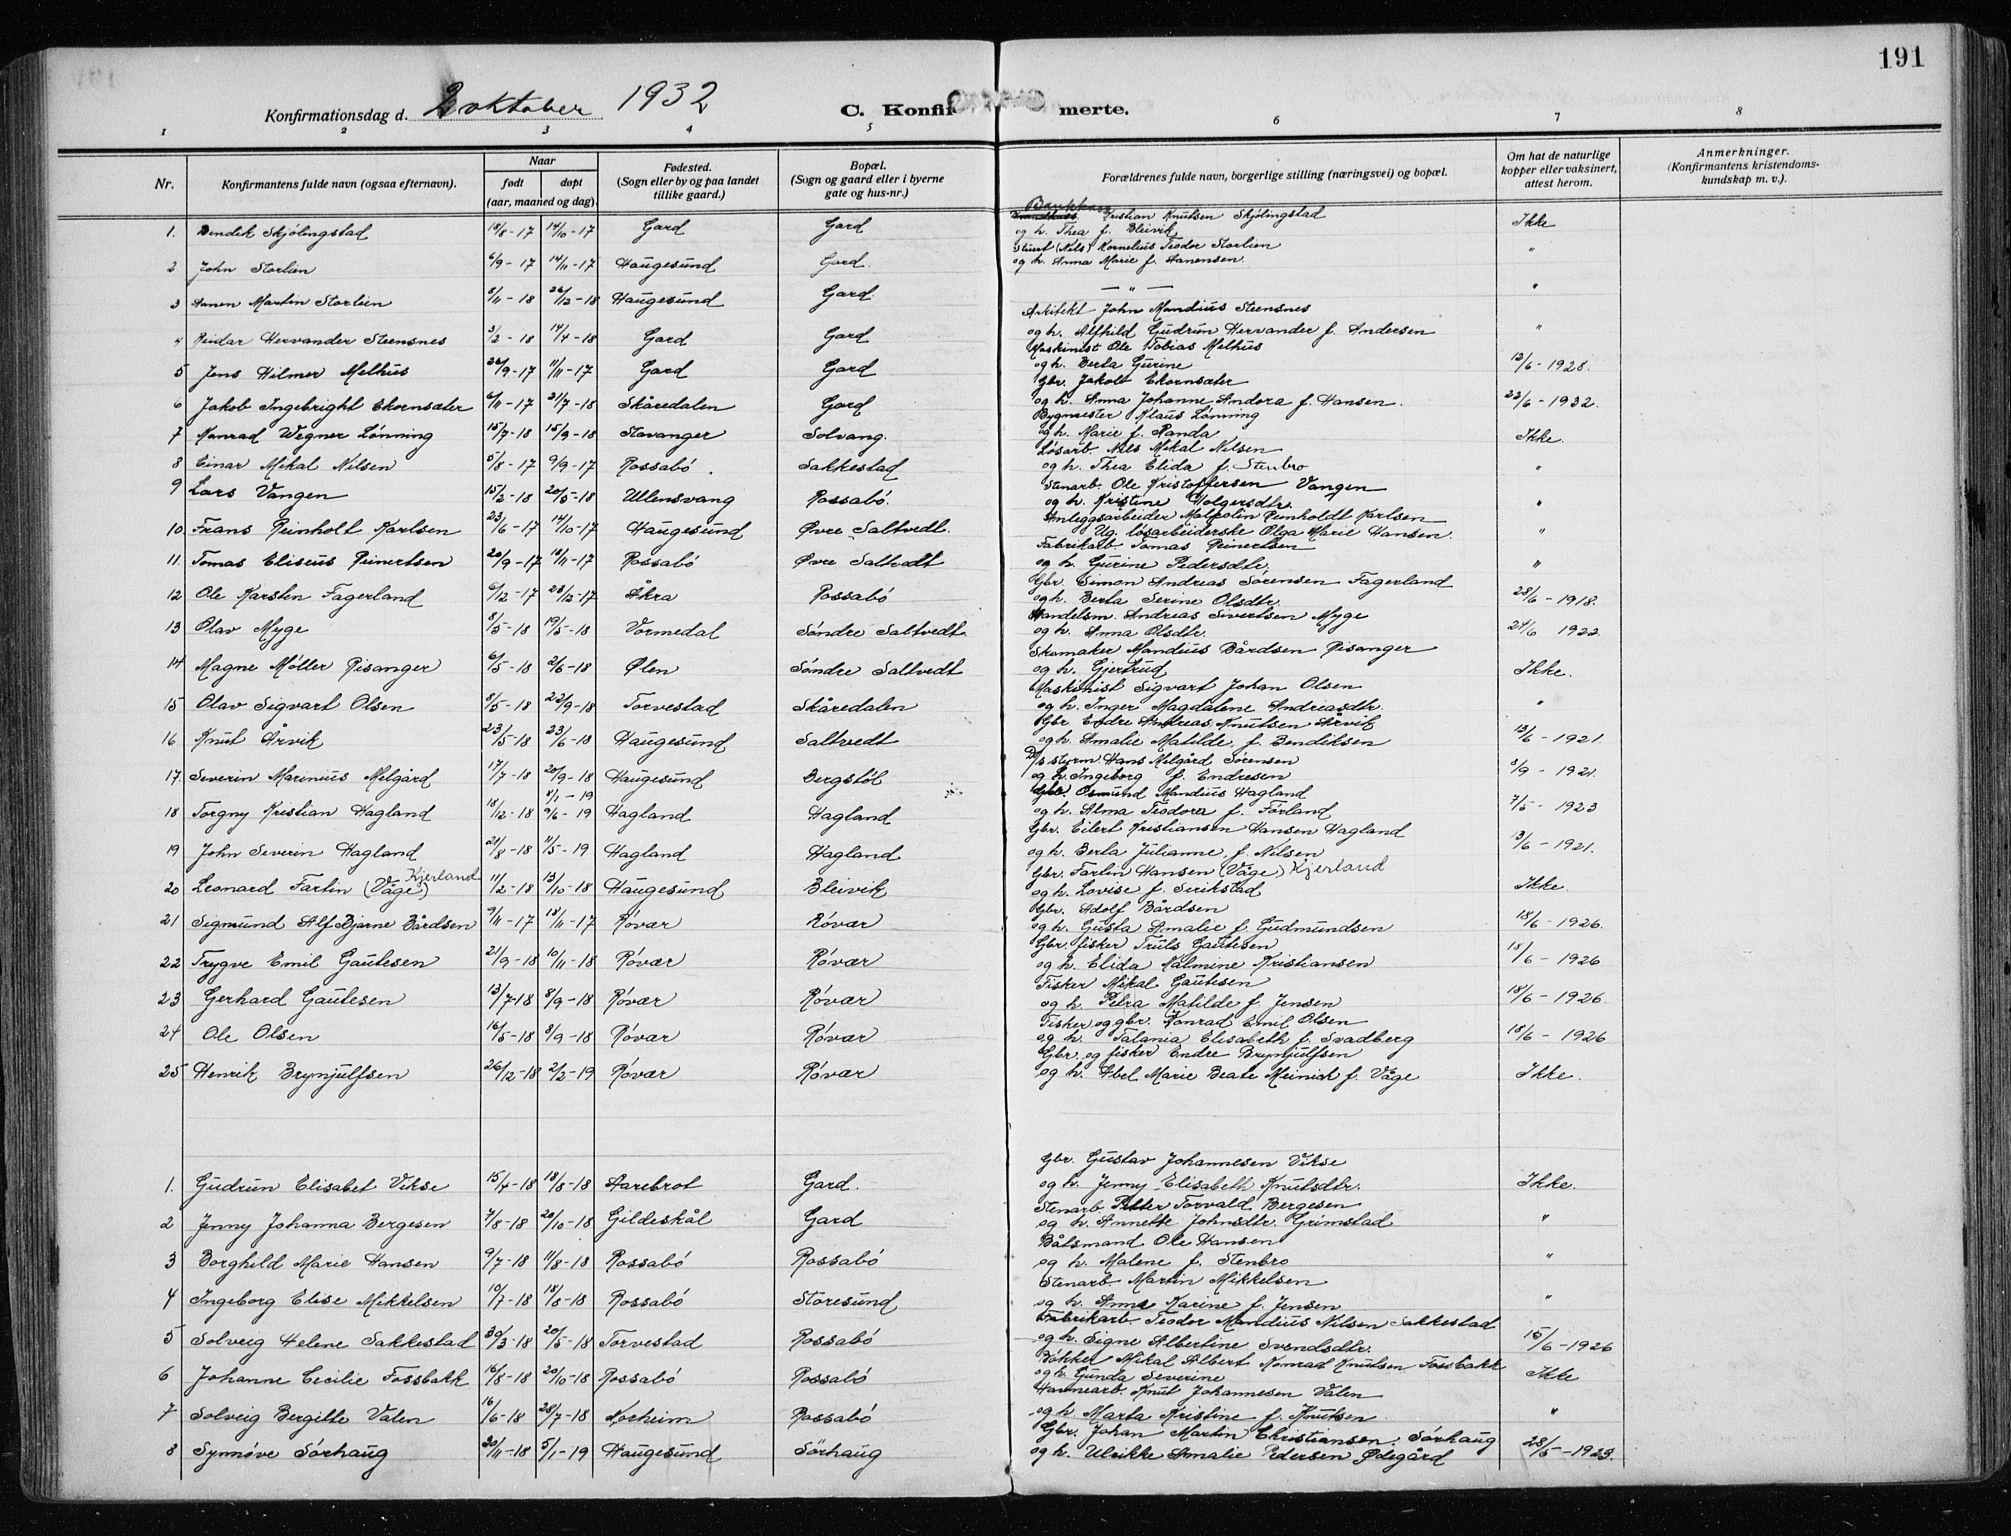 191
Konfirmationsdag d. 2 oktober 1932 C. Konfirmerte.
1 2 3 4 5 6 7 8
Nr. Konfirmantens fulde navn (ogsaa efternavn). Naar født døpt (aar, maaned og dag). Fødested. (Sogn eller by og paa landet tillike gaard.) Bopæl. (Sogn og gaard eller i byerne gate og hus-nr.) Forældrenes fulde navn, borgerlige stilling (næringsvei) og bopæl. Om hat de naturlige kopper eller vaksinert, attest herom. Anmerkninger. (Konfirmantens kristendomskundskap m. v.).
1. Bendik Skjölingstad 18/8-17 14/10-17 Gard Gard Kristian Knutsen Skjölingstad og h. Thea f. Bleivik Ikke
2 John Storlien 6/9-17 14/11-17 Haugesund Gard. Stuert (Nils) Kornelius Teodor Storlien og h. Anna Marie f. Aanensen. "
3 Aanen Martin Storlien 8/11-18 26/12-18 Haugesund Gard — " — "
4 Reidar Hervander Steensnes 3/2-18 14/4-18 Gard Gard Arkitekt John Mandius Steensnes og h. Alfhild Gudrun Hervander f. Andersen "
5 Jens Hilmer Melhus 26/9-17 11/11-17 Gard Gard Maskinist Ole Tobias Melhus og h. Berta Gurine 12/6-1928.
6 Jakob Ingebright Ekornsæter 6/11-17 21/7-18 Skåredalen Gard Gbr. Jakob Ekornsæter og h. Anna Johanne Andora f. Hansen. 22/6-1932.
7 Konrad Wegner Lönning 15/7-18 15/9-18 Stavanger Solvang. Bygmester Klaus Lönning og h. Marie f. Randa Ikke.
8 Einar Mikal Nilsen 5/8-17 9/9-17 Rossabö. Sakkestad Lösarb. Nils Mikal Nilsen og h. Thea Elida f. Stenbro "
9 Lars Vangen 15/2-18 20/5-18 Ullensvang Rossabö. Stenarb. Ole Kristoffersen Vangen og h. Kristine Holgersdtr. "
10. Frans Reinholt Karlsen 23/6-17 14/10-17 Haugesund Övre Saltvedt. Anleggsarbeider Malfolin Reinholdt Karlsen Ug. lösarbeiderske Olga Marie Hansen. "
11. Tomas Eliseus Reinertsen 20/9-17 18/11-17 Rossabö Övre Saltvedt Fabrikarb. Tomas Reinertsen og h. Gurine Pedersdtr. "
12 Ole Karsten Fagerland 6/12-17 23/12-17 Åkra Rossabö Gbr. Simon Andreas Sörensen Fagerland og h. Berta Serine Olsdtr. 28/6-1918.
13 Olav Myge 8/5-18 19/5-18 Vormedal Söndre Saltvedt. Handelsm. Andreas Sivertsen Myge og h. Anna Olsdtr. 24/6 1922.
14 Magne Möller Risanger 6/5-18 2/6-18 Ølen Söndre Saltvedt Skomaker Mandius Bårdsen Risanger og h. Gjertrud Ikke.
15 Olav Sigvart Olsen 8/5-18 22/9-18 Torvestad Skåredalen Maskinist Sigvart Johan Olsen og h. Inger Magdalene Andreasdtr. "
16 Knut Årvik 23/5-18 23/6-18 Haugesund Saltvedt Gbr. Endre Andreas Knutsen Årvik og h. Amalie Matilde f. Bendiksen 13/6-1921.
17. Severin Marinius Melgård 17/7-18 20/9-18 Haugesund Bergslöt D/s styrm. Hans Melgård Sörensen og h. Ingeborg f. Endresen 3/9-1921.
18 Torgny Kristian Hagland 18/12-18 8/1-19 9/6-19 Hagland Hagland Gbr. Osmund Mandius Hagland og h. Alma Teodora f. Förland 7/5-1923
19 John Severin Hagland 21/8-18 11/5-19 Hagland Hagland Gbr. Eilert Kristiansen Hansen Hagland og h. Berta Julianne f. Nilsen 13/6-1921.
20 Leonard Fartin (Våge) Kjerland 11/2-18 13/10-18 Haugesund Bleivik Gbr. Fartin Hansen (Våge) Kjerland og h. Lovise f. Serikstad Ikke.
21 Sigmund Alf Bjarne Bårdsen 9/11-17 18/11-17 Rövær Rövær Gbr. Adolf Bårdsen og h. Gusta Amalie f. Gudmundsen 18/6-1926.
22 Trygve Emil Gautesen 21/9-18 10/11-18 Rövær Rövær Gbr. fisker Truls Gautesen og h. Elida Kalmine Kristiansen 18/6-1926
23 Gerhard Gautesen 13/7-18 8/9-18 Rövær Rövær Fisker Mikal Gautesen og h. Petra Matilde f. Jensen 18/6-1926.
24 Ole Olsen 16/5-18 8/9-18 Rövær Rövær Fisker og gbr. Konrad Emil Olsen og h. Talania Elisabeth f. Svadberg 18/6-1926
25 Henrik Brynjulfsen 26/12-18 2/2-19 Rövær Rövær Gbr. og fisker Endre Brynjulfsen og h. Abel Marie Beate Meinich f. Våge Ikke.
1. Gudrun Elisabet Vikse 15/4-18 18/8-18 Aarebrot Gard. Gbr. Gustav Johannesen Vikse og h. Jenny Elisabeth Knutsdtr. Ikke.
2 Jenny Johanna Bergesen 7/8-18 20/10-18 Gildeskål Gard Stenarb. Petter Torvald Bergesen og h. Annette Johnsdtr. Grimstad "
3 Borghild Marie Hansen 9/7-18 11/8-18 Rossabö Rossabö Båtsmand Ole Hansen og h. Malene f. Stenbro "
4 Ingeborg Elise Mikkelsen 10/7-18 18/8-18 Rossabö Storesund Stenarb. Martin Mikkelsen og h. Anna Karine f. Jensen "
5 Solveig Helene Sakkestad 30/3-18 20/5-18 Torvestad Rossabö Fabrikarb. Teodor Mandius Nilsen Sakkestad og h. Signe Albertine Svendsdtr. 15/6-1926
6 Johanne Cecilie Fossbakk 16/8-18 20/10-18 Rossabö Rossabö Bökker Mikal Albert Konrad Knutsen Fossbakk og h. Gunda Severine Ikke
7 Solveig Bergitte Valen 16/6-18 28/7-18 Norheim Rossabö Havnearb. Knut Johannesen Valen og h. Marta Kristine f. Knutsen "
8 Synnöve Sörhaug 20/11-18 5/1-19 Haugesund Sörhaug Gbr. Johan Martin Christiansen Sörhaug og h. Ulrikke Amalie Pedersen Ödegård 28/5-1923.